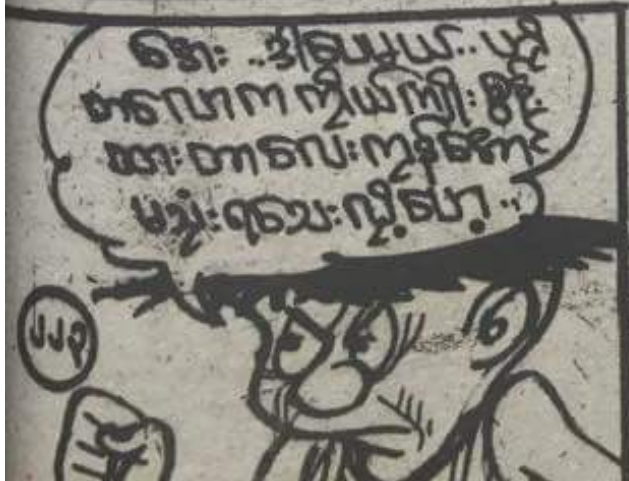 အေး ..ဒါပေမယ့်.. ဟို
တလောက ကိုယ်ကျိုးစွန့်
ထားတာလေးကုန်အောင်
မသုံးရသေးလို့ပေါ့..
၂၂၃